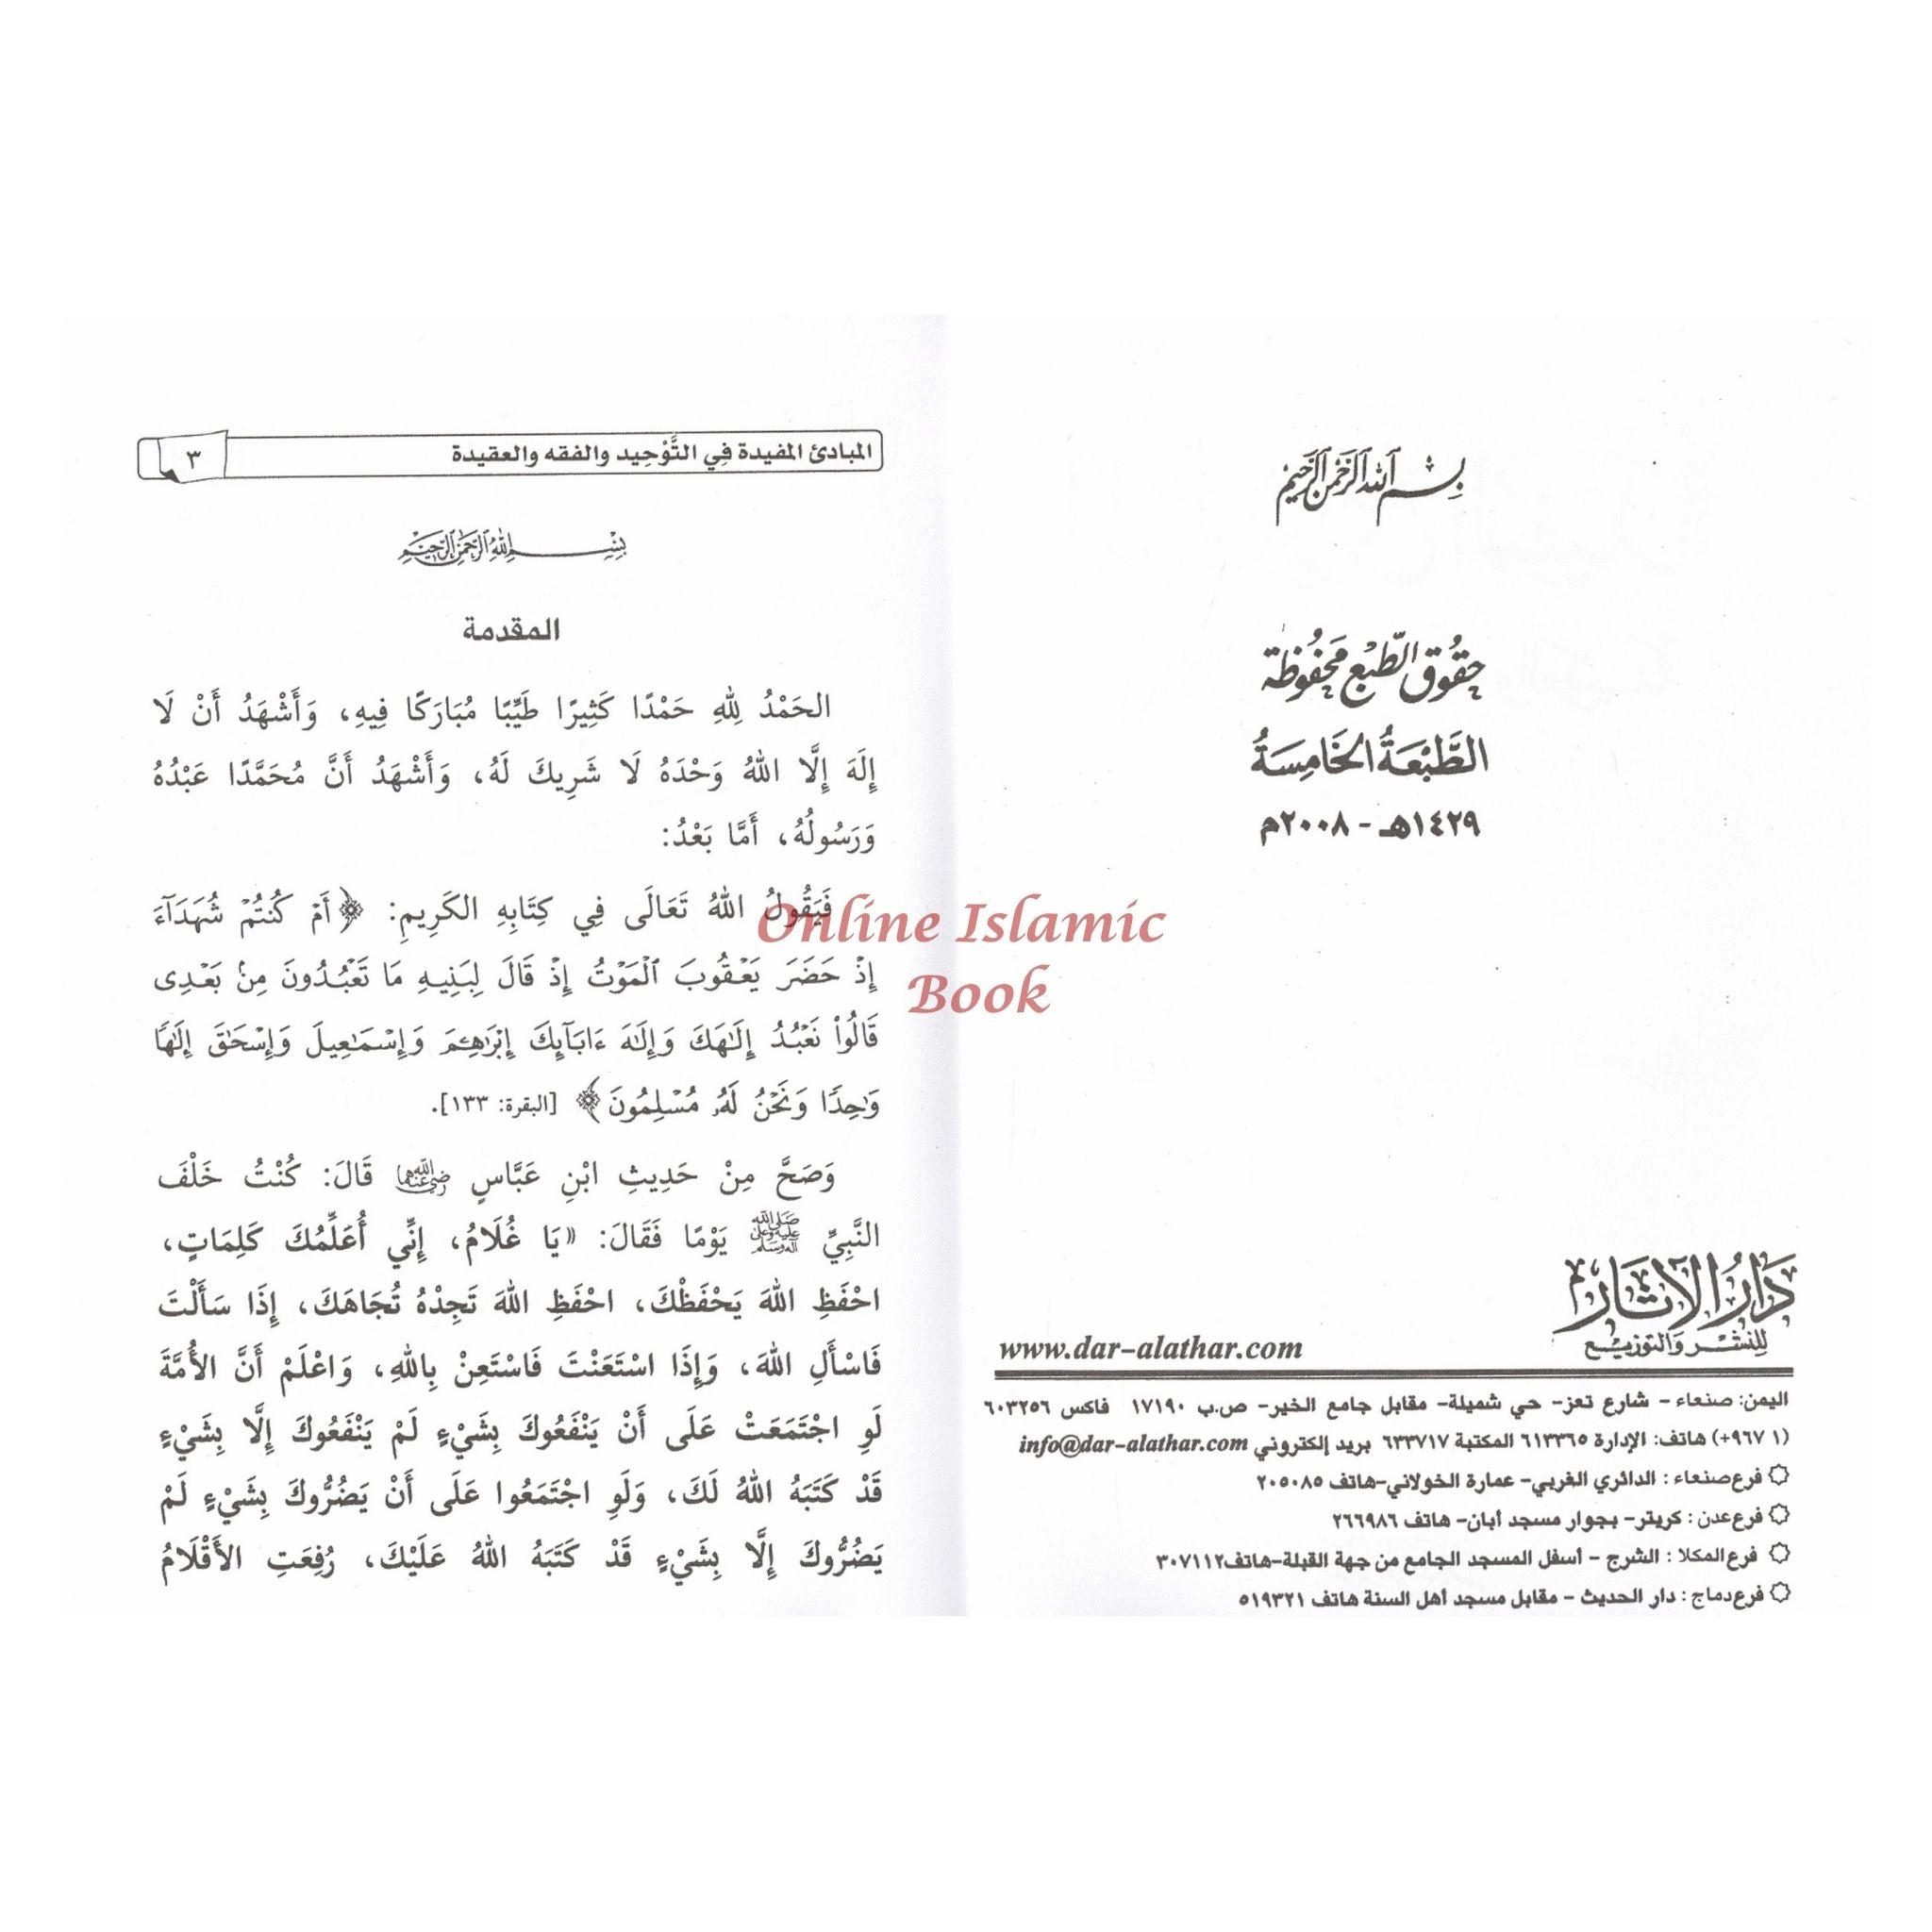 بسم الله الرحمن الرحيم
حقوق الطبع محفوظة
الطَّبْعَةُ الخَامِسَةُ
١٤٢٩هـ - ٢٠٠٨م
دَارُ الآثَار
للنشر والتوزيع
www.dar-alathar.com
اليمن: صنعاء - شارع تعز- حي شميلة- مقابل جامع الخير- ص.ب ١٧١٩٠ فاكس ٦٠٣٢٥٦
(+٩٦٧ ١) هاتف: الإدارة ٦١٣٣٦٥ المكتبة ٦٣٣٧١٧ بريد إلكتروني info@dar-alathar.com
فرع صنعاء : الدائري الغربي- عمارة الخولاني-هاتف ٢٠٥٠٨٥
فرع عدن : كريتر- بجوار مسجد أبان- هاتف ٢٦٦٩٨٦
فرع المكلا : الشرج - أسفل المسجد الجامع من جهة القبلة-هاتف٣٠٧١١٢
فرع دماج : دار الحديث - مقابل مسجد أهل السنة هاتف ٥١٩٣٢١
المبادئ المفيدة فِي التَّوْحِيد والفقه والعقيدة ٣
بسم الله الرحمن الرحيم
المقدمة
الحَمْدُ لِلهِ حَمْدًا كَثِيرًا طَيِّبًا مُبَارَكًا فِيهِ، وَأَشْهَدُ أَنْ لَا
إِلَهَ إِلَّا اللهُ وَحْدَهُ لَا شَرِيكَ لَهُ، وَأَشْهَدُ أَنَّ مُحَمَّدًا عَبْدُهُ
وَرَسُولُهُ، أَمَّا بَعْدُ:
فَيَقُولُ اللهُ تَعَالَى فِي كِتَابِهِ الكَرِيمِ: ﴿ أَمْ كُنتُمْ شُهَدَآءَ
إِذْ حَضَرَ يَعْقُوبَ ٱلْمَوْتُ إِذْ قَالَ لِبَنِيهِ مَا تَعْبُدُونَ مِنۢ بَعْدِى
قَالُوا۟ نَعْبُدُ إِلَـٰهَكَ وَإِلَـٰهَ ءَابَآئِكَ إِبْرَٰهِـۧمَ وَإِسْمَـٰعِيلَ وَإِسْحَـٰقَ إِلَـٰهًا
وَٰحِدًا وَنَحْنُ لَهُۥ مُسْلِمُونَ ﴾ [البقرة: ١٣٣].
وَصَحَّ مِنْ حَدِيثِ ابْنِ عَبَّاسٍ رضي الله عنهما قَالَ: كُنْتُ خَلْفَ
النَّبِيِّ صلى الله عليه وعلى آله وسلم يَوْمًا فَقَالَ: «يَا غُلَامُ، إِنِّي أُعَلِّمُكَ كَلِمَاتٍ،
احْفَظِ اللهَ يَحْفَظْكَ، احْفَظِ اللهَ تَجِدْهُ تُجَاهَكَ، إِذَا سَأَلْتَ
فَاسْأَلِ اللهَ، وَإِذَا اسْتَعَنْتَ فَاسْتَعِنْ بِاللهِ، وَاعْلَمْ أَنَّ الأُمَّةَ
لَوِ اجْتَمَعَتْ عَلَى أَنْ يَنْفَعُوكَ بِشَيْءٍ لَمْ يَنْفَعُوكَ إِلَّا بِشَيْءٍ
قَدْ كَتَبَهُ اللهُ لَكَ، وَلَوِ اجْتَمَعُوا عَلَى أَنْ يَضُرُّوكَ بِشَيْءٍ لَمْ
يَضُرُّوكَ إِلَّا بِشَيْءٍ قَدْ كَتَبَهُ اللهُ عَلَيْكَ، رُفِعَتِ الأَقْلَامُ
Online Islamic
Book